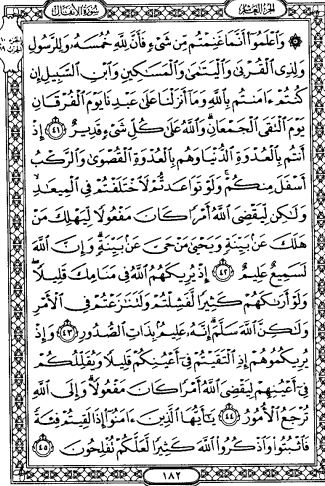 الجزء العاشر
سورة الأنفال
۞ وَاعْلَمُوا أَنَّمَا غَنِمْتُم مِّن شَىْءٍ فَأَنَّ لِلَّهِ خُمُسَهُ وَلِلرَّسُولِ
وَلِذِى الْقُرْبَىٰ وَالْيَتَامَىٰ وَالْمَسَاكِينِ وَابْنِ السَّبِيلِ إِن
كُنتُمْ ءَامَنتُم بِاللَّهِ وَمَا أَنزَلْنَا عَلَىٰ عَبْدِنَا يَوْمَ الْفُرْقَانِ
يَوْمَ الْتَقَى الْجَمْعَانِ وَاللَّهُ عَلَىٰ كُلِّ شَىْءٍ قَدِيرٌ ٤١ إِذْ
أَنتُم بِالْعُدْوَةِ الدُّنْيَا وَهُم بِالْعُدْوَةِ الْقُصْوَىٰ وَالرَّكْبُ
أَسْفَلَ مِنكُمْ وَلَوْ تَوَاعَدتُّمْ لَاخْتَلَفْتُمْ فِى الْمِيعَادِ
وَلَٰكِن لِّيَقْضِىَ اللَّهُ أَمْرًا كَانَ مَفْعُولًا لِّيَهْلِكَ مَنْ
هَلَكَ عَن بَيِّنَةٍ وَيَحْيَىٰ مَنْ حَىَّ عَن بَيِّنَةٍ وَإِنَّ اللَّهَ
لَسَمِيعٌ عَلِيمٌ ٤٢ إِذْ يُرِيكَهُمُ اللَّهُ فِى مَنَامِكَ قَلِيلًا
وَلَوْ أَرَاكَهُمْ كَثِيرًا لَّفَشِلْتُمْ وَلَتَنَازَعْتُمْ فِى الْأَمْرِ
وَلَٰكِنَّ اللَّهَ سَلَّمَ إِنَّهُ عَلِيمٌ بِذَاتِ الصُّدُورِ ٤٣ وَإِذْ
يُرِيكُمُوهُمْ إِذِ الْتَقَيْتُمْ فِى أَعْيُنِكُمْ قَلِيلًا وَيُقَلِّلُكُمْ
فِى أَعْيُنِهِمْ لِيَقْضِىَ اللَّهُ أَمْرًا كَانَ مَفْعُولًا وَإِلَى اللَّهِ
تُرْجَعُ الْأُمُورُ ٤٤ يَا أَيُّهَا الَّذِينَ ءَامَنُوا إِذَا لَقِيتُمْ فِئَةً
فَاثْبُتُوا وَاذْكُرُوا اللَّهَ كَثِيرًا لَّعَلَّكُمْ تُفْلِحُونَ ٤٥
١٨٢